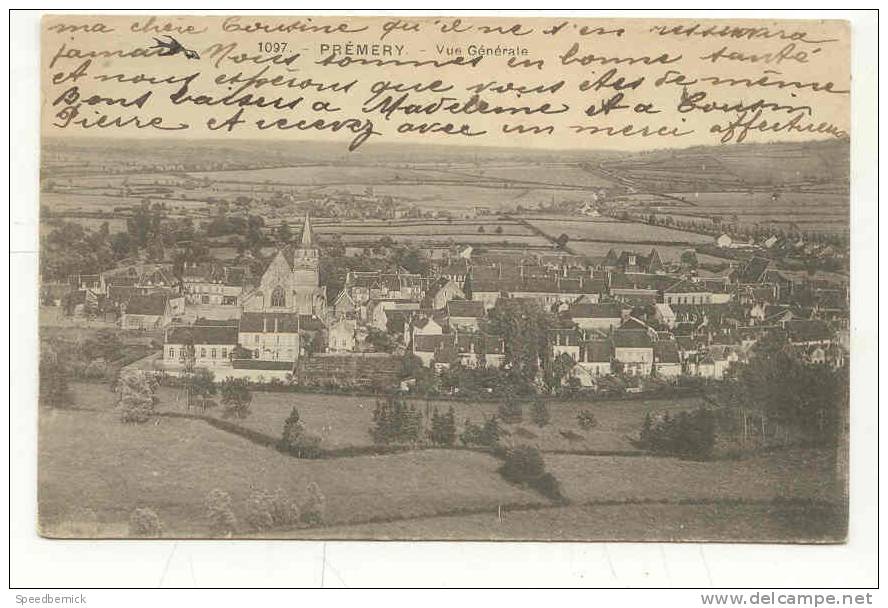 ma chère Cousine qu'il ne s'en ressentira
jamais Nous sommes en bonne santé
1097. - PRÉMERY. - Vue Générale
et nous espérons que vous êtes de même
Bons baisers a Madeleine et a Cousin
Pierre et recevez avec un merci affectueux
Speedbernick
www.delcampe.net